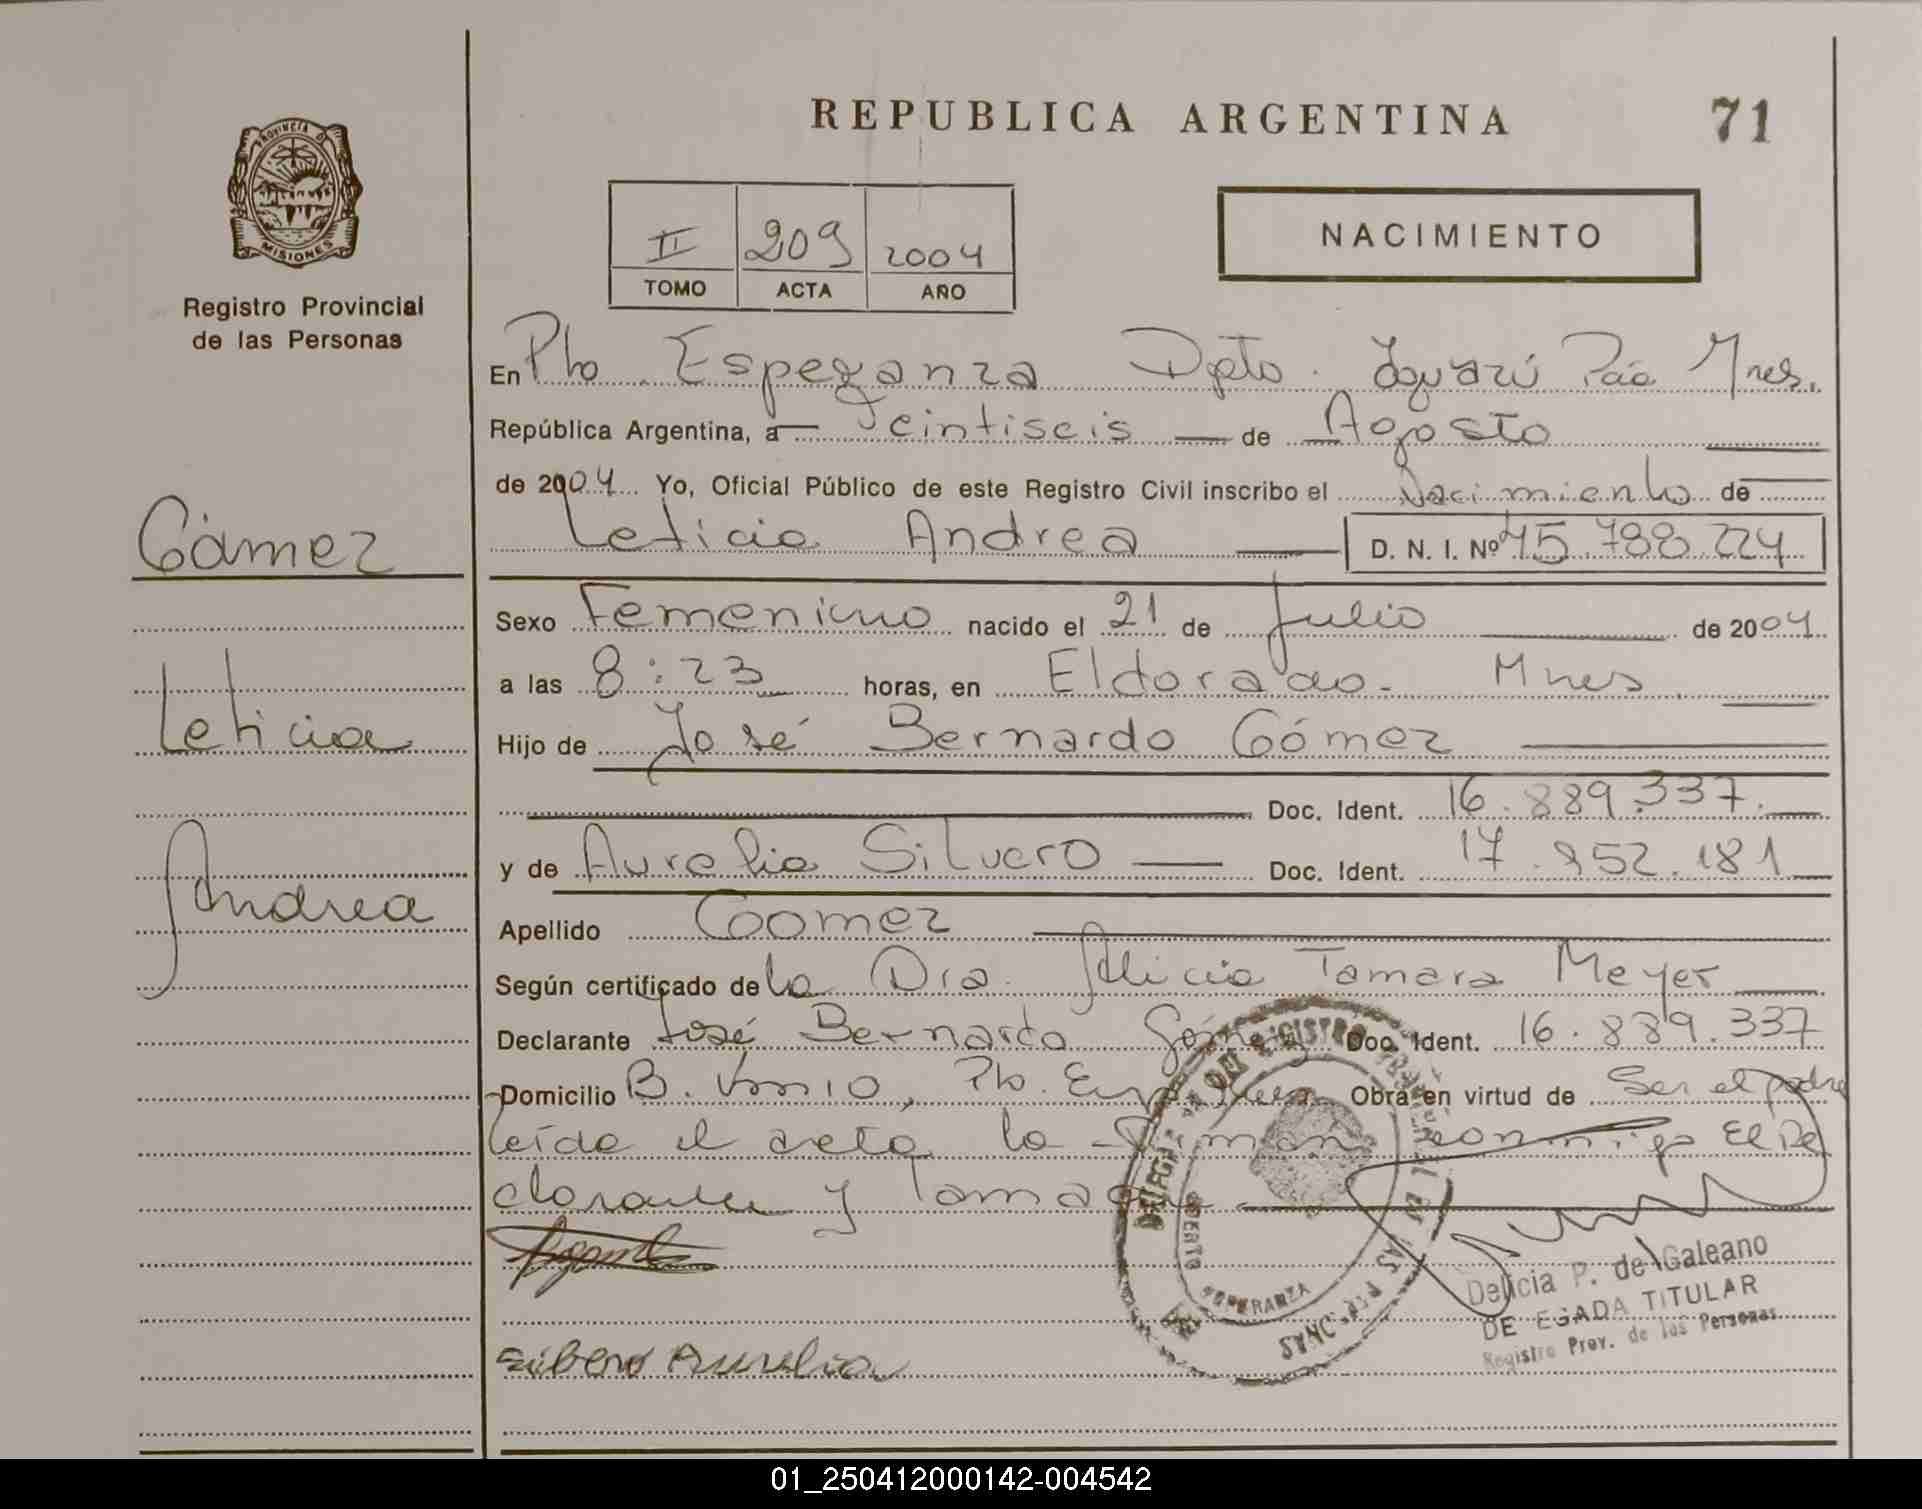 REPUBLICA ARGENTINA 71
PROVINCIA DE
MISIONES
Registro Provincial
de las Personas
II 209 2004
TOMO ACTA AÑO
NACIMIENTO
En Pto Esperanza Dpto. Iguazú Pcia Mnes.
República Argentina, a Veintiseis de Agosto
de 2004 Yo, Oficial Público de este Registro Civil inscribo el Nacimiento de
Leticia Andrea D. N. I. Nº 45.788.224
Gómez
Leticia
Andrea
Sexo Femenino nacido el 21 de Julio de 2004
a las 8:23 horas, en Eldorado - Mnes
Hijo de José Bernardo Gómez
Doc. Ident. 16.889.337.
y de Aurelia Silvero Doc. Ident. 17.952.181
Apellido Gomez
Según certificado de la Dra. Alicia Tamara Meyer
Declarante José Bernardo Gómez Doc. Ident. 16.889.337
Domicilio B. Unio, Pto. Esperanza Obra en virtud de Ser el padre
leída el acta la Firman conmigo El De
clarante y Tomaga
Silbero Aurelia
DELEGACION DEL REGISTRO PROVINCIAL DE LAS PERSONAS
PUERTO ESPERANZA
Delicia P. de Galeano
DELEGADA TITULAR
Registro Prov. de las Personas
01_250412000142-004542